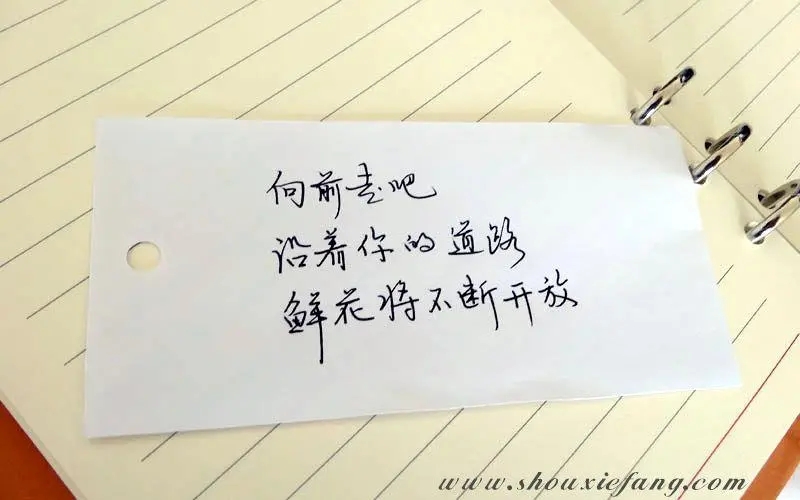 向前去吧
沿着你的道路
鲜花将不断开放
www.shouxiefang.com